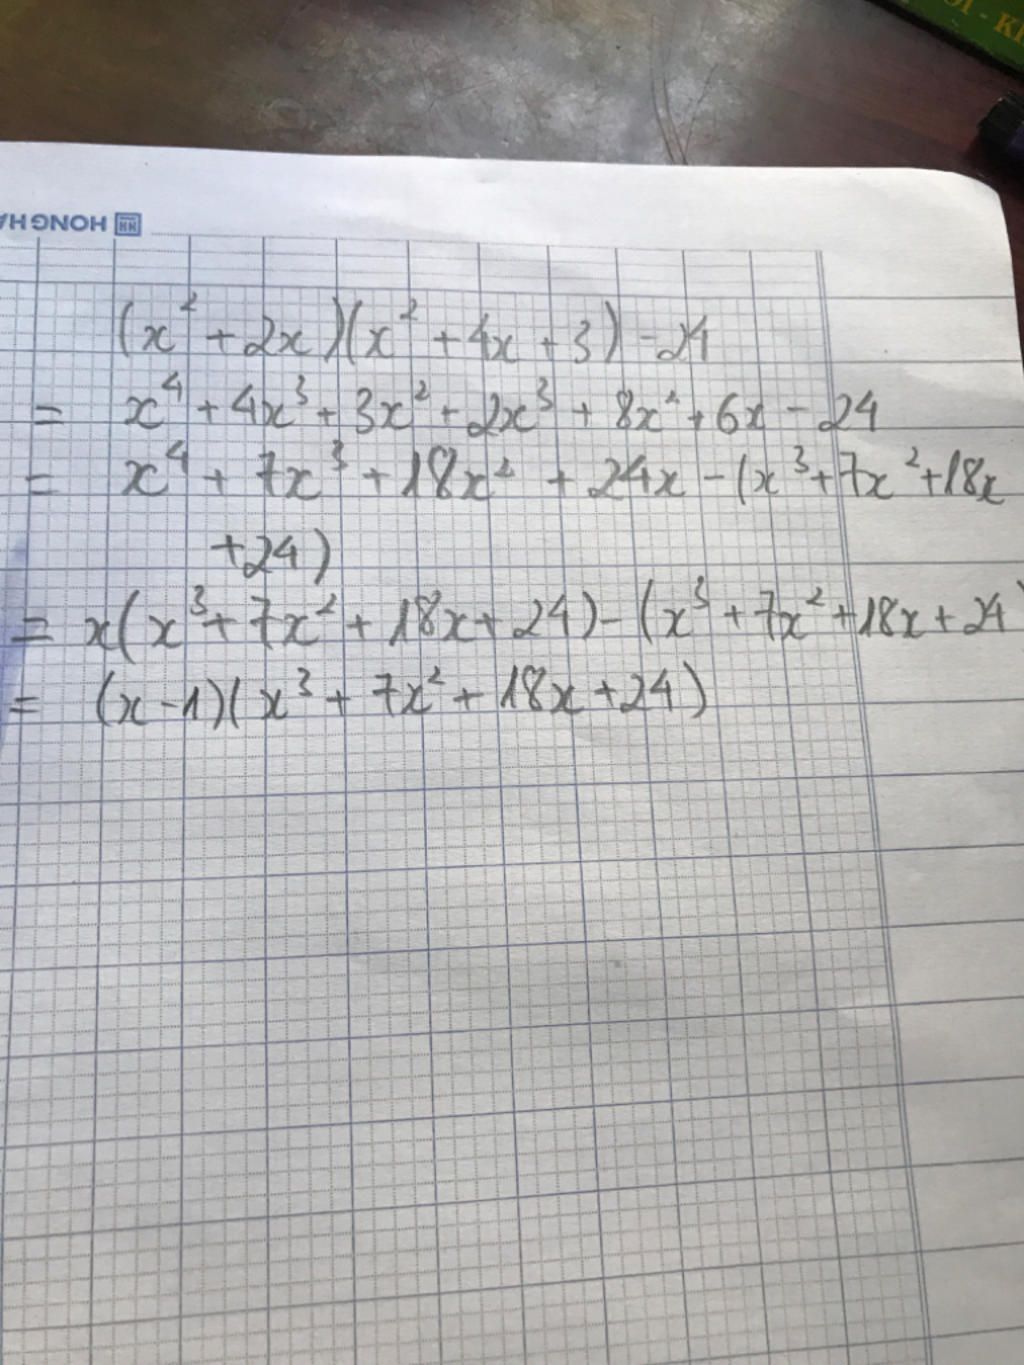 HONG HA
(x² + 2x)(x² + 4x + 3) - 24
= x⁴ + 4x³ + 3x² + 2x³ + 8x² + 6x - 24
= x⁴ + 7x³ + 18x² + 24x - (x³ + 7x² + 18x
+ 24)
= x(x³ + 7x² + 18x + 24) - (x³ + 7x² + 18x + 24)
= (x - 1)(x³ + 7x² + 18x + 24)